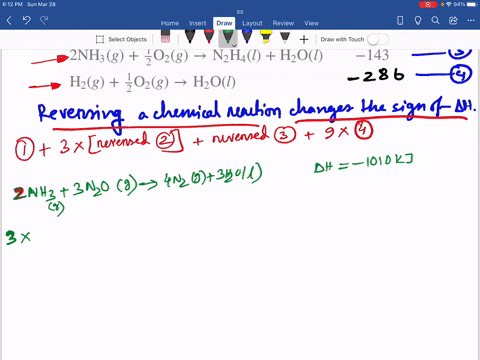 6:12 PM Sun Mar 28
69
94%
Home Insert Draw Layout Review View
Select Objects
Draw with Touch
2NH₃(g) + ½O₂(g) → N₂H₄(l) + H₂O(l) −143 ③
H₂(g) + ½O₂(g) → H₂O(l) −286 ④
Reversing a chemical reaction changes the sign of ΔH.
① + 3 × [reversed ②] + reversed ③ + 9 × ④
2NH₃ + 3N₂O (g) → 4N₂(g) + 3H₂O(l) ΔH = −1010 KJ
(g)
3 ×